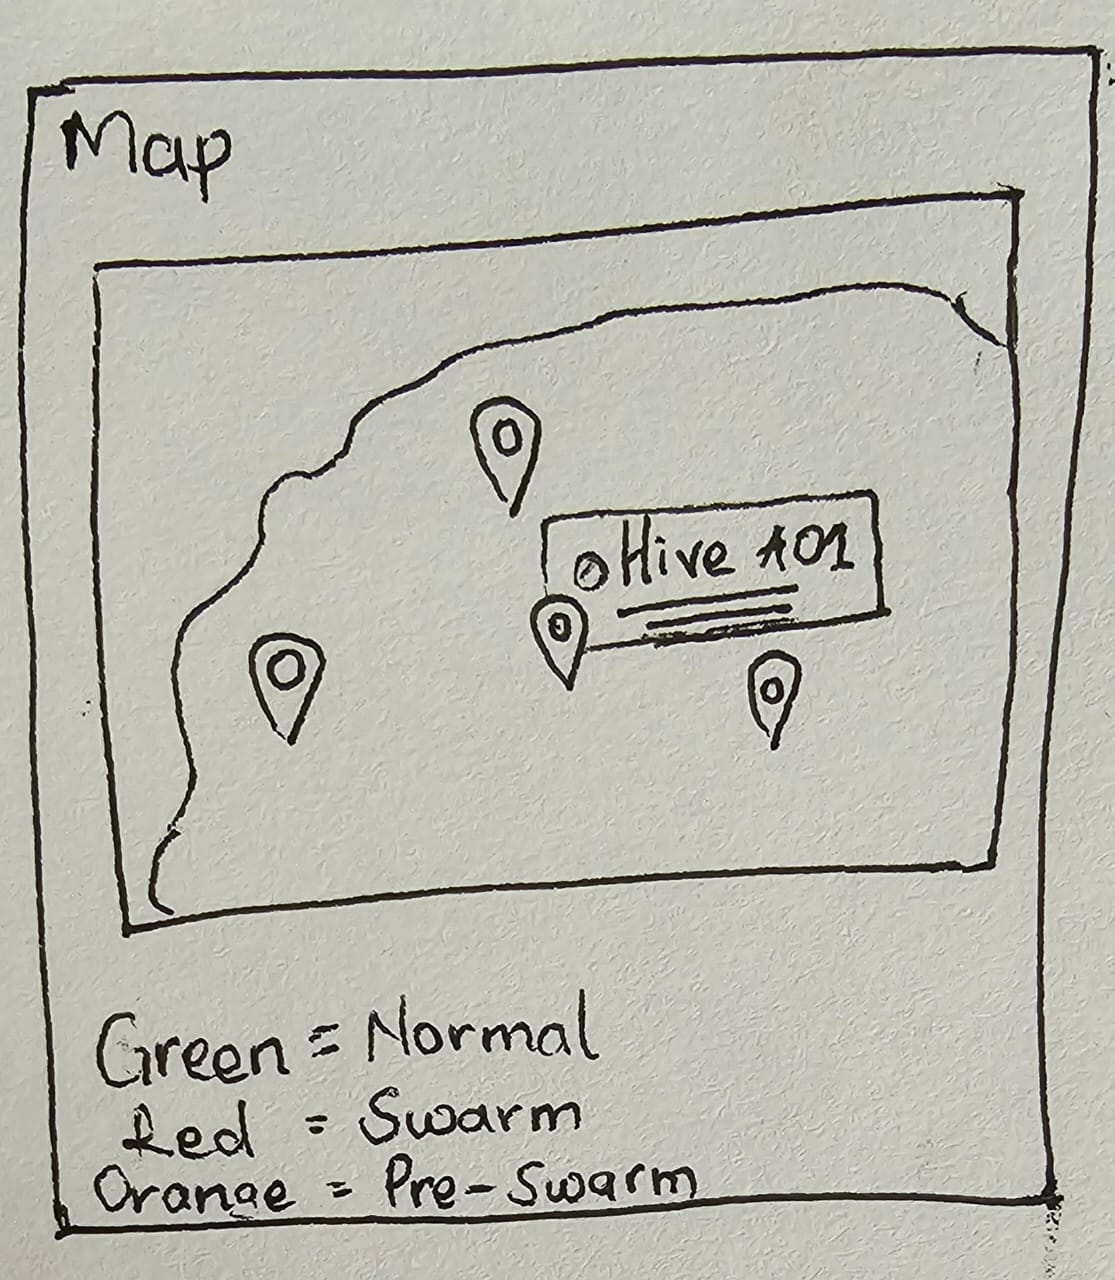 Map
Hive A01
Green = Normal
Red = Swarm
Orange = Pre-Swarm